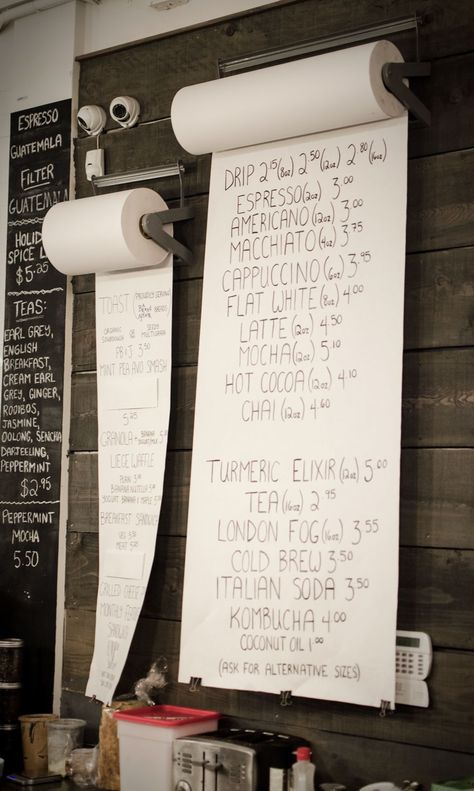 ESPRESSO
GUATEMALA
FILTER
GUATEMALA
HOLID
SPICE L
$5.25
TEAS:
EARL GREY,
ENGLISH
BREAKFAST,
CREAM EARL
GREY, GINGER,
ROOIBOS,
JASMINE,
OOLONG, SENCHA
DARTEELING,
PEPPERMINT
$2.95
PEPPERMINT
MOCHA
5.50
TOAST (PROUDLY SERVING
BREADS)
ORGANIC SOURDOUGH OR SEEDY MULTIGRAIN
PB&J 3.50
MINT PEA AVO SMASH
5.25
GRANOLA +
LIEGE WAFFLE
PLAIN
BANANA NUTELLA
YOGURT BANANA & MAPLE 5.75
BREAKFAST SANDWICH
VEG 3.50
MEAT 5.25
GRILLED CHEESE
MONTHLY
SANDWICH
DRIP 2.15 (8oz) 2.50 (12oz) 2.80 (16oz)
ESPRESSO (2oz) 3.00
AMERICANO (12oz) 3.00
MACCHIATO (4oz) 3.75
CAPPUCCINO (6oz) 3.95
FLAT WHITE (8oz) 4.00
LATTE (12oz) 4.50
MOCHA (12oz) 5.10
HOT COCOA (12oz) 4.10
CHAI (12oz) 4.60
TURMERIC ELIXIR (12oz) 5.00
TEA (16oz) 2.95
LONDON FOG (16oz) 3.55
COLD BREW 3.50
ITALIAN SODA 3.50
KOMBUCHA 4.00
COCONUT OIL 1.00
(ASK FOR ALTERNATIVE SIZES)